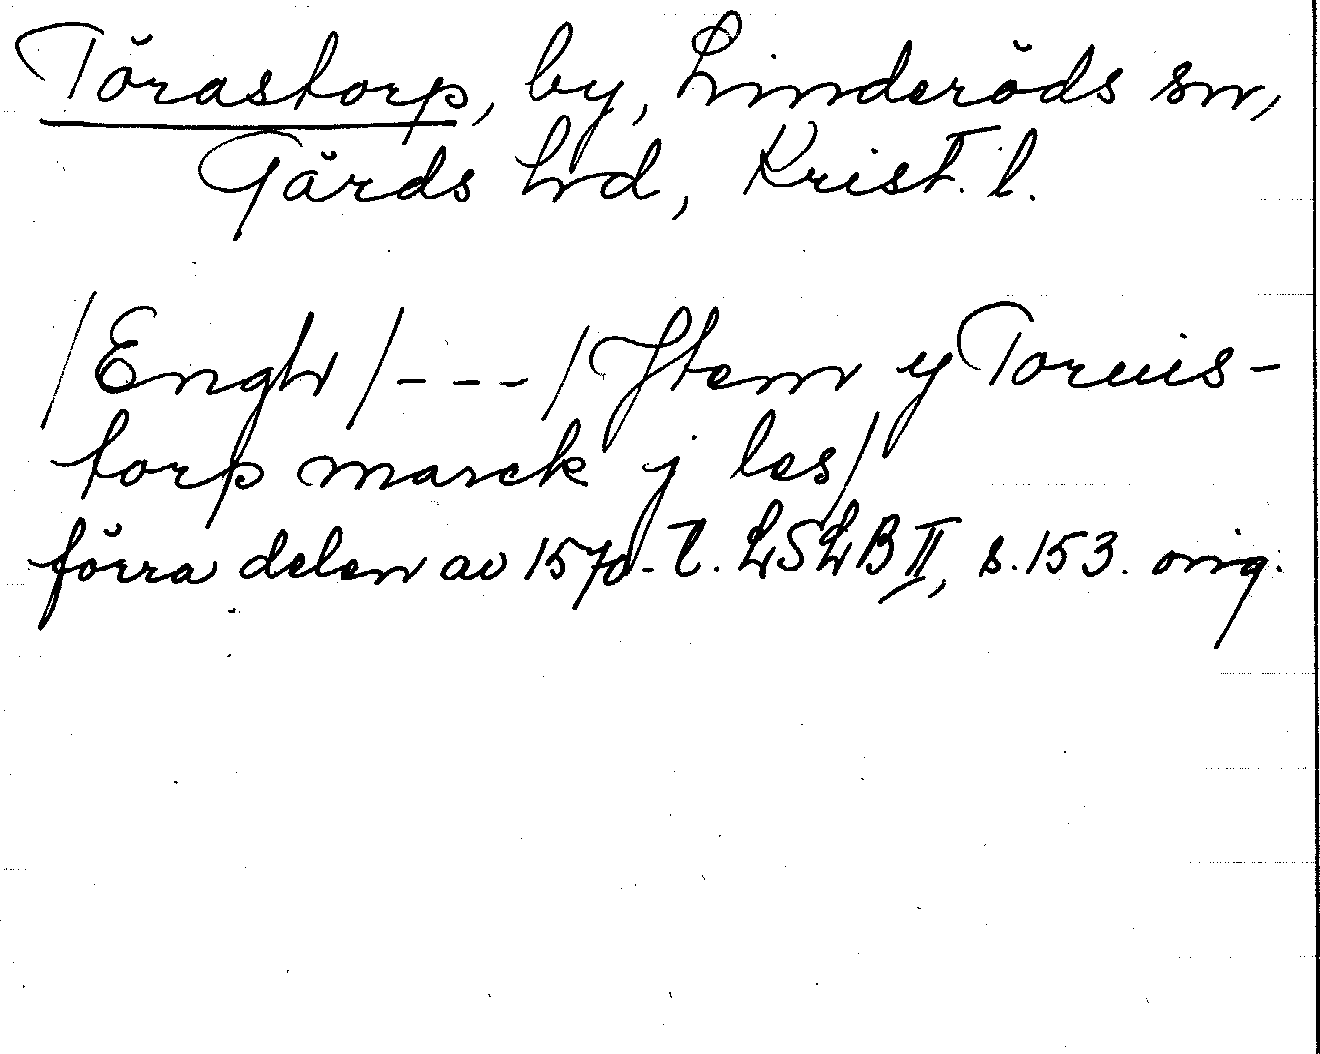 Törastorp, by, Linderöds sn,
Gärds hd, Krist. l.
/Engh/---/Jtem y Toruis-
torp marck j les/
förra delen av 1570-t. LSLB II, s.153. orig.